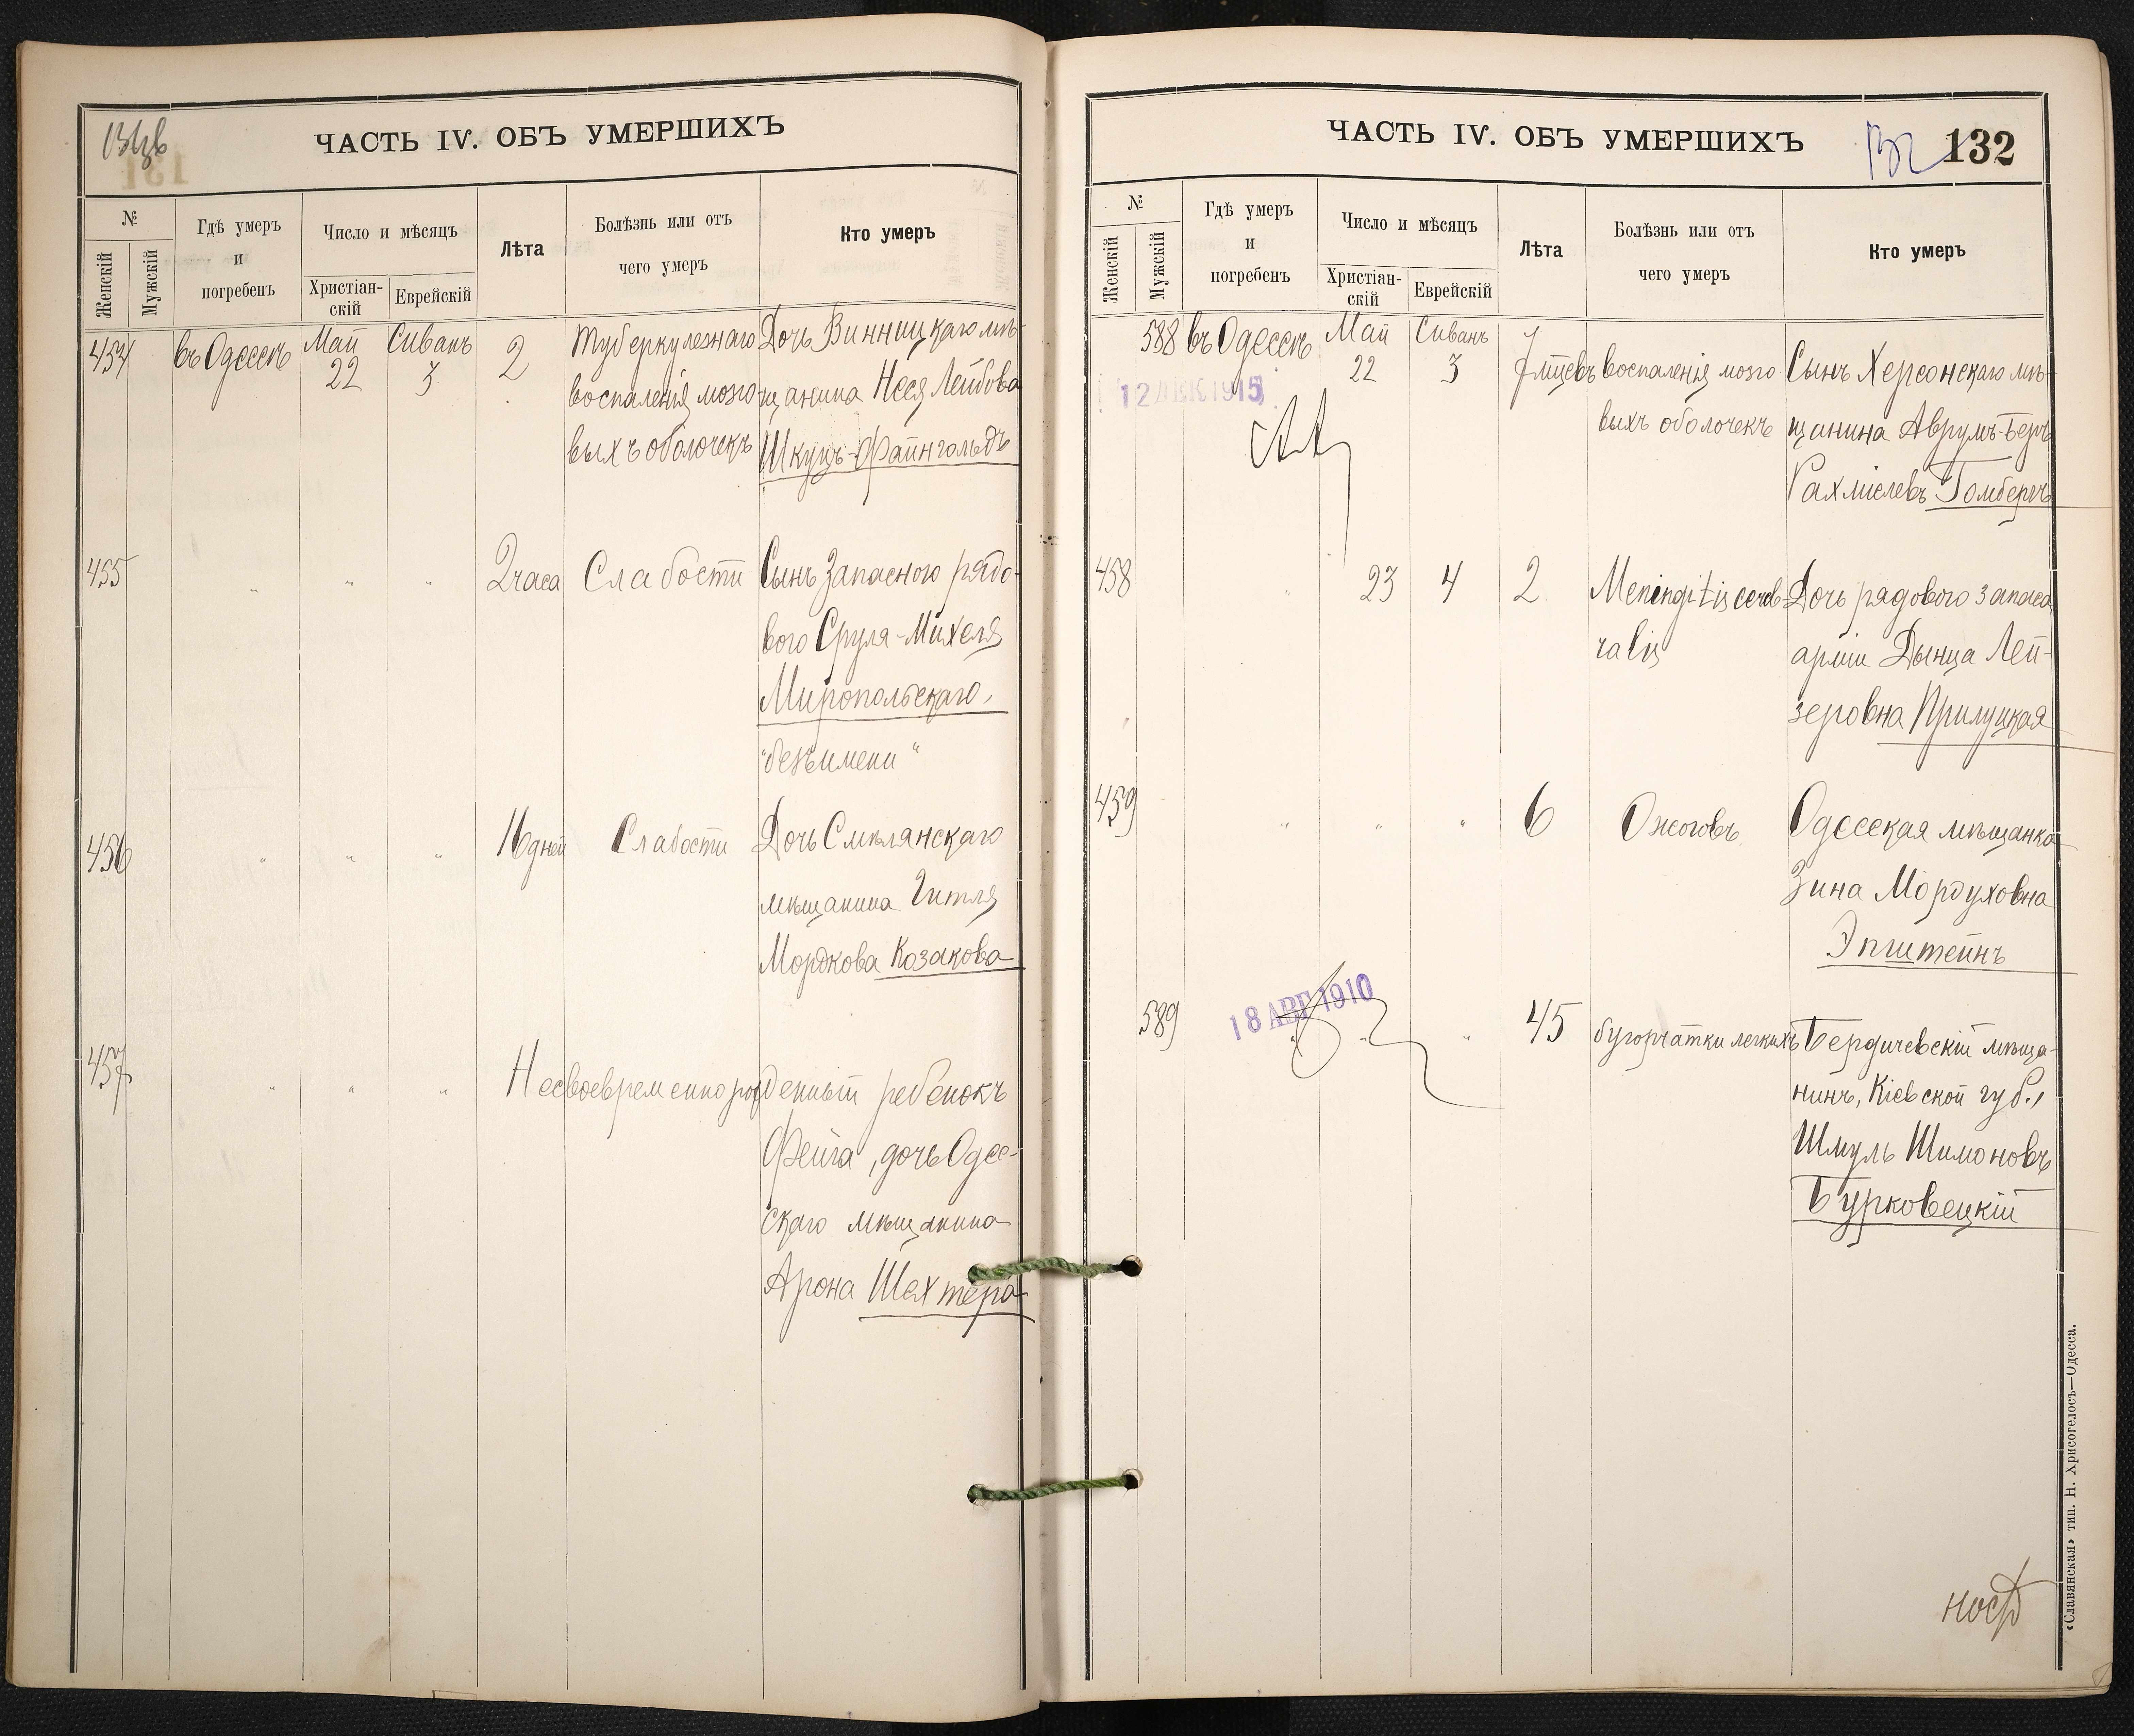 ЧАСТЬ IV. ОБЪ УМЕРШИХЪ
№
Женскій
Мужскій
Гдѣ умеръ
и
погребенъ
Число и мѣсяцъ
Христіан-
скій
Еврейскій
Лѣта
Болѣзнь или отъ
чего умеръ
Кто умеръ
454
въ Одессѣ
Май
22
Сиванъ
3
2
Туберкулезнаго
воспаленія мозго-
выхъ оболочекъ
Дочь Винницкаго мѣ-
щанина Неся Лейбова
Шкуцъ-Файнгольдъ
455
"
"
"
2 часа
Слабости
Сынъ запасного рядо-
вого Сруля-Михеля
Миропольскаго,
"безъ имени"
456
"
"
"
16 дней
Слабости
Дочь Смѣлянскаго
мѣщанина Гитля
Мордкова Козакова
457
"
"
"
Несвоевременно рожденный ребенокъ
Фейга, дочь Одес-
скаго мѣщанина
Арона Шехтера
ЧАСТЬ IV. ОБЪ УМЕРШИХЪ
132
132
№
Женскій
Мужскій
Гдѣ умеръ
и
погребенъ
Число и мѣсяцъ
Христіан-
скій
Еврейскій
Лѣта
Болѣзнь или отъ
чего умеръ
Кто умеръ
588
въ Одессѣ
Май
22
Сиванъ
3
7 мцевъ
воспаленія мозго
выхъ оболочекъ
Сынъ Херсонскаго мѣ-
щанина Аврумъ-Беръ
Рахміелевъ Гомбергъ
12 ДЕК 1915
458
"
23
4
2
Meningitis cereb-
ralis
Дочь рядового запаса
арміи Дынца Лей-
зеровна Прилуцкая
459
"
"
"
6
Ожоговъ
Одесская мѣщанка
Зина Мордуховна
Эпштейнъ
589
18 АВГ 1910
"
"
"
45
бугорчатки легкихъ
Бердичевскій мѣща-
нинъ, Кіевской губ.,
Шмуль Шимоновъ
Бурковецкій
«Славянская» тип. Н. Хрисогелосъ—Одесса.